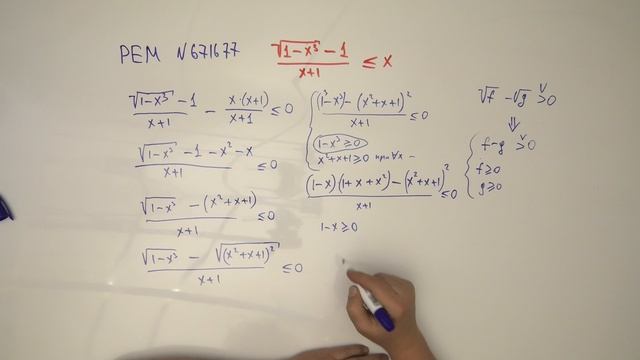 РЕМ N671677
(√(1-x³) - 1)/(x+1) ≤ x
(√(1-x³) - 1)/(x+1) - (x·(x+1))/(x+1) ≤ 0
(√(1-x³) - 1 - x² - x)/(x+1) ≤ 0
(√(1-x³) - (x²+x+1))/(x+1) ≤ 0
(√(1-x³) - √((x²+x+1)²))/(x+1) ≤ 0
((1³-x³) - (x²+x+1)²)/(x+1) ≤ 0
1-x³ ≥ 0
x²+x+1 ≥ 0 при ∀x -
((1-x)(1+x+x²) - (x²+x+1)²)/(x+1) ≤ 0
1-x ≥ 0
√f - √g ∨ 0
⇓
f-g ∨ 0
f ≥ 0
g ≥ 0